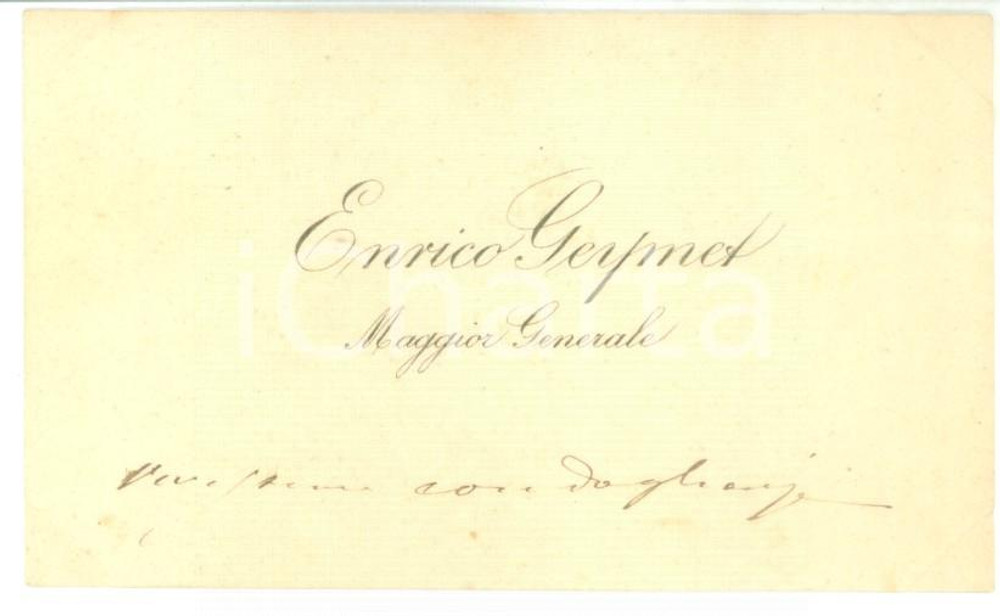 Enrico Geymet
Maggior Generale
iCharta
vivissime condoglianze